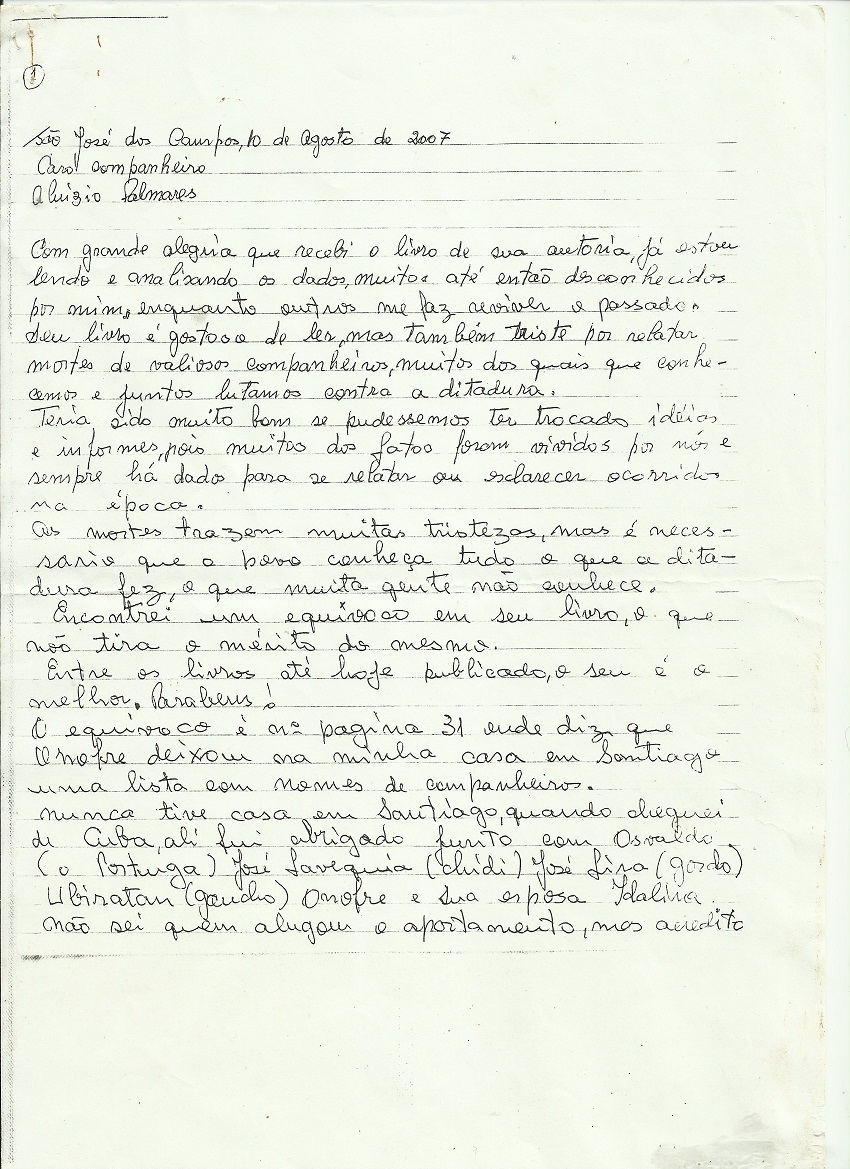 1
São José dos Campos, 10 de Agosto de 2007
Caro companheiro
Aluizio Palmares
Com grande alegria que recebi o livro de sua autoria, já estou
lendo e analisando os dados, muitos até então desconhecidos
por mim, enquanto outros me faz reviver o passado.
Seu livro é gostoso de ler, mas também triste por relatar
mortes de valiosos companheiros, muitos dos quais que conhe-
cemos e juntos lutamos contra a ditadura.
Teria sido muito bom se pudessemos ter trocado idéias
e informes, pois muitos dos fatos foram vividos por nós e
sempre há dados para se relatar ou esclarecer ocorridos
na época.
As mortes trazem muitas tristezas, mas é neces-
sario que o povo conheça tudo o que a dita-
dura fez, o que muita gente não conhece.
Encontrei um equivoco em seu livro, o que
não tira o mérito do mesmo.
Entre os livros até hoje publicado, o seu é o
melhor. Parabens!
O equivoco é na pagina 31 onde diz que
Onofre deixou na minha casa em Santiago
uma lista com nomes de companheiros.
nunca tive casa em Santiago, quando cheguei
de Cuba, ali fui abrigado junto com Osvaldo
(o Portuga) José Lavequia (chidi) José Lira (gordo)
Ubiratan (gaucho) Onofre e sua esposa Idalina.
não sei quem alugou o apartamento, mas acredito